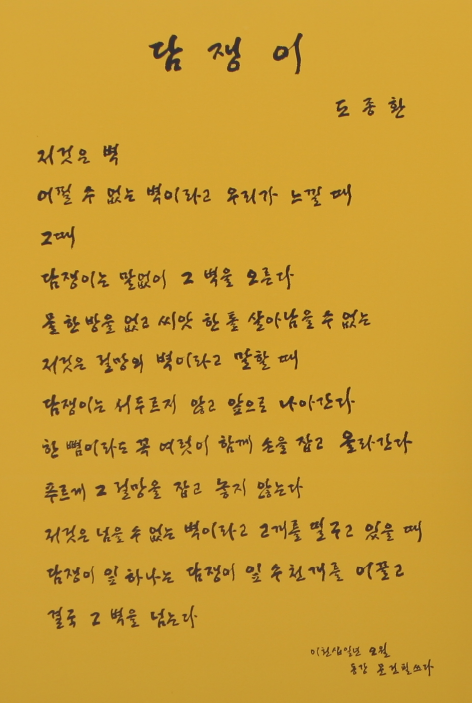 담쟁이
도종환
저것은 벽
어쩔 수 없는 벽이라고 우리가 느낄 때
그때
담쟁이는 말없이 그 벽을 오른다
물 한방울 없고 씨앗 한 톨 살아남을 수 없는
저것은 절망의 벽이라고 말할 때
담쟁이는 서두르지 않고 앞으로 나아간다
한 뼘이라도 꼭 여럿이 함께 손을 잡고 올라간다
푸르게 그 절망을 잡고 놓지 않는다
저것은 넘을 수 없는 벽이라고 고개를 떨구고 있을 때
담쟁이 잎 하나는 담쟁이 잎 수천 개를 이끌고
결국 그 벽을 넘는다
이천십일년 오월
동강 문건필쓰다